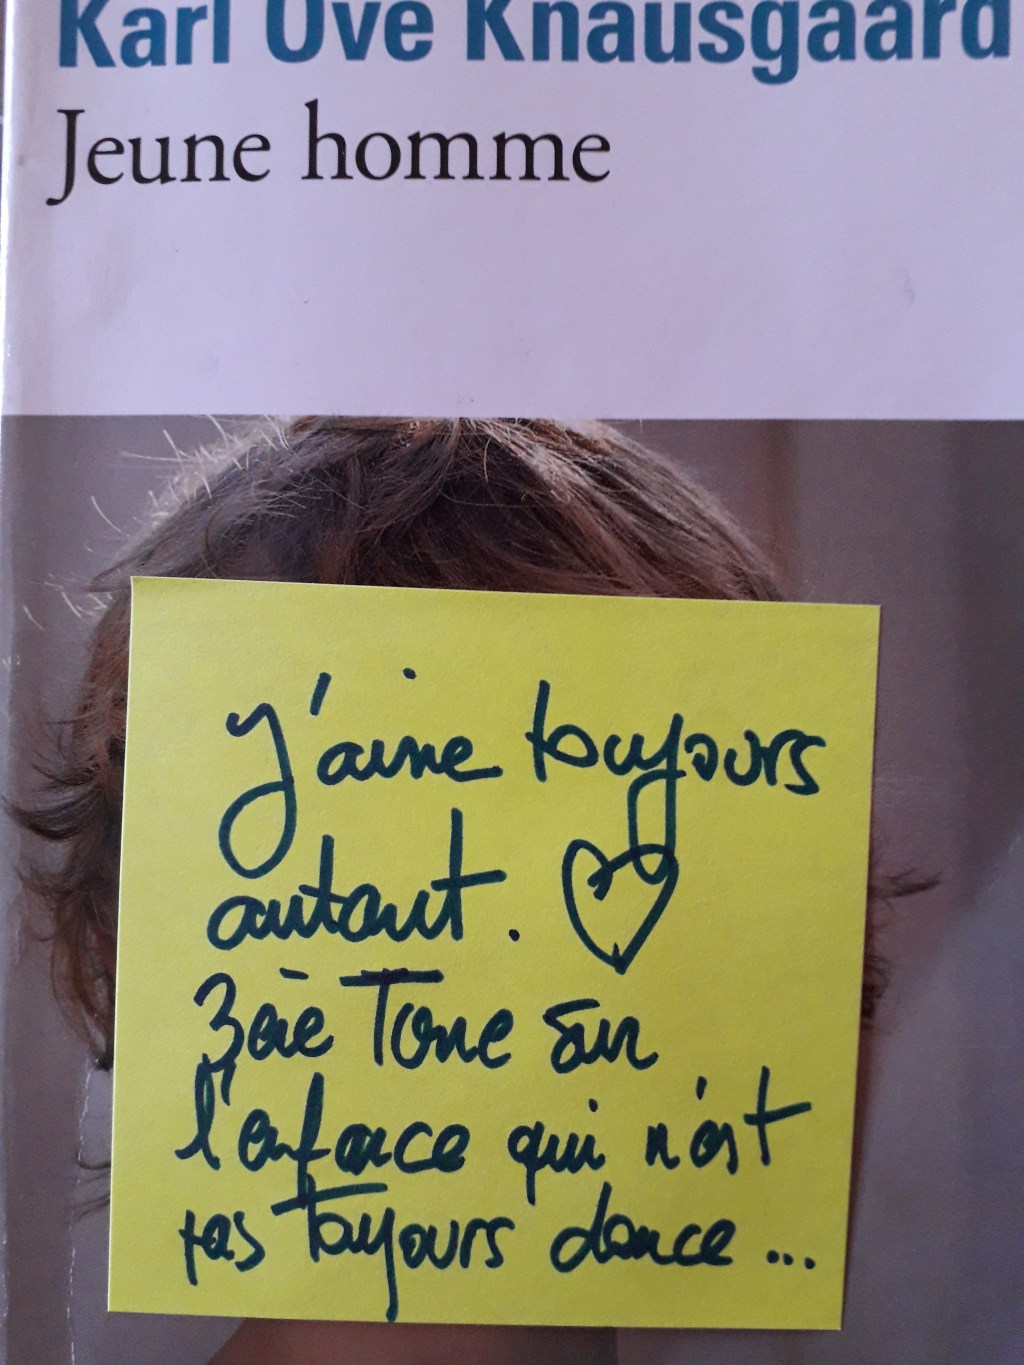 Karl Ove Knausgaard
Jeune homme
J'aime toujours
autant. ♡
3ère Tome sur
l'enfance qui n'est
pas toujours douce ...